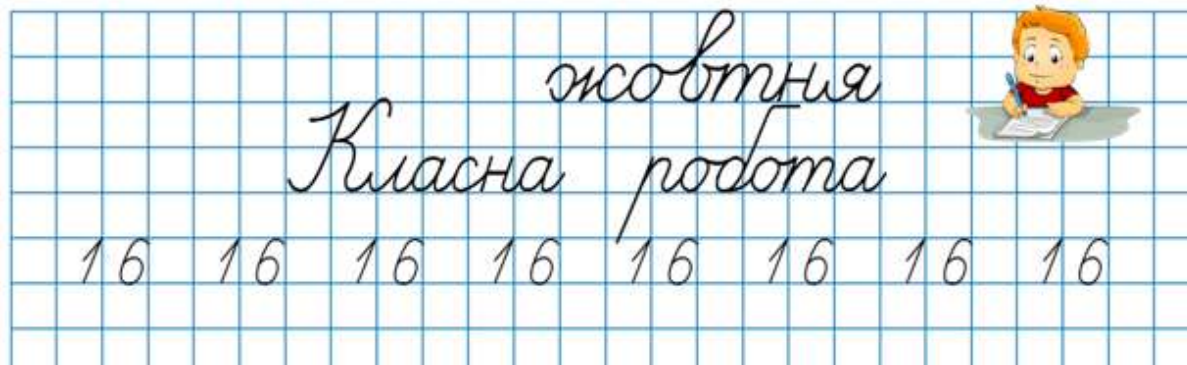 жовтня
Класна робота
16 16 16 16 16 16 16 16